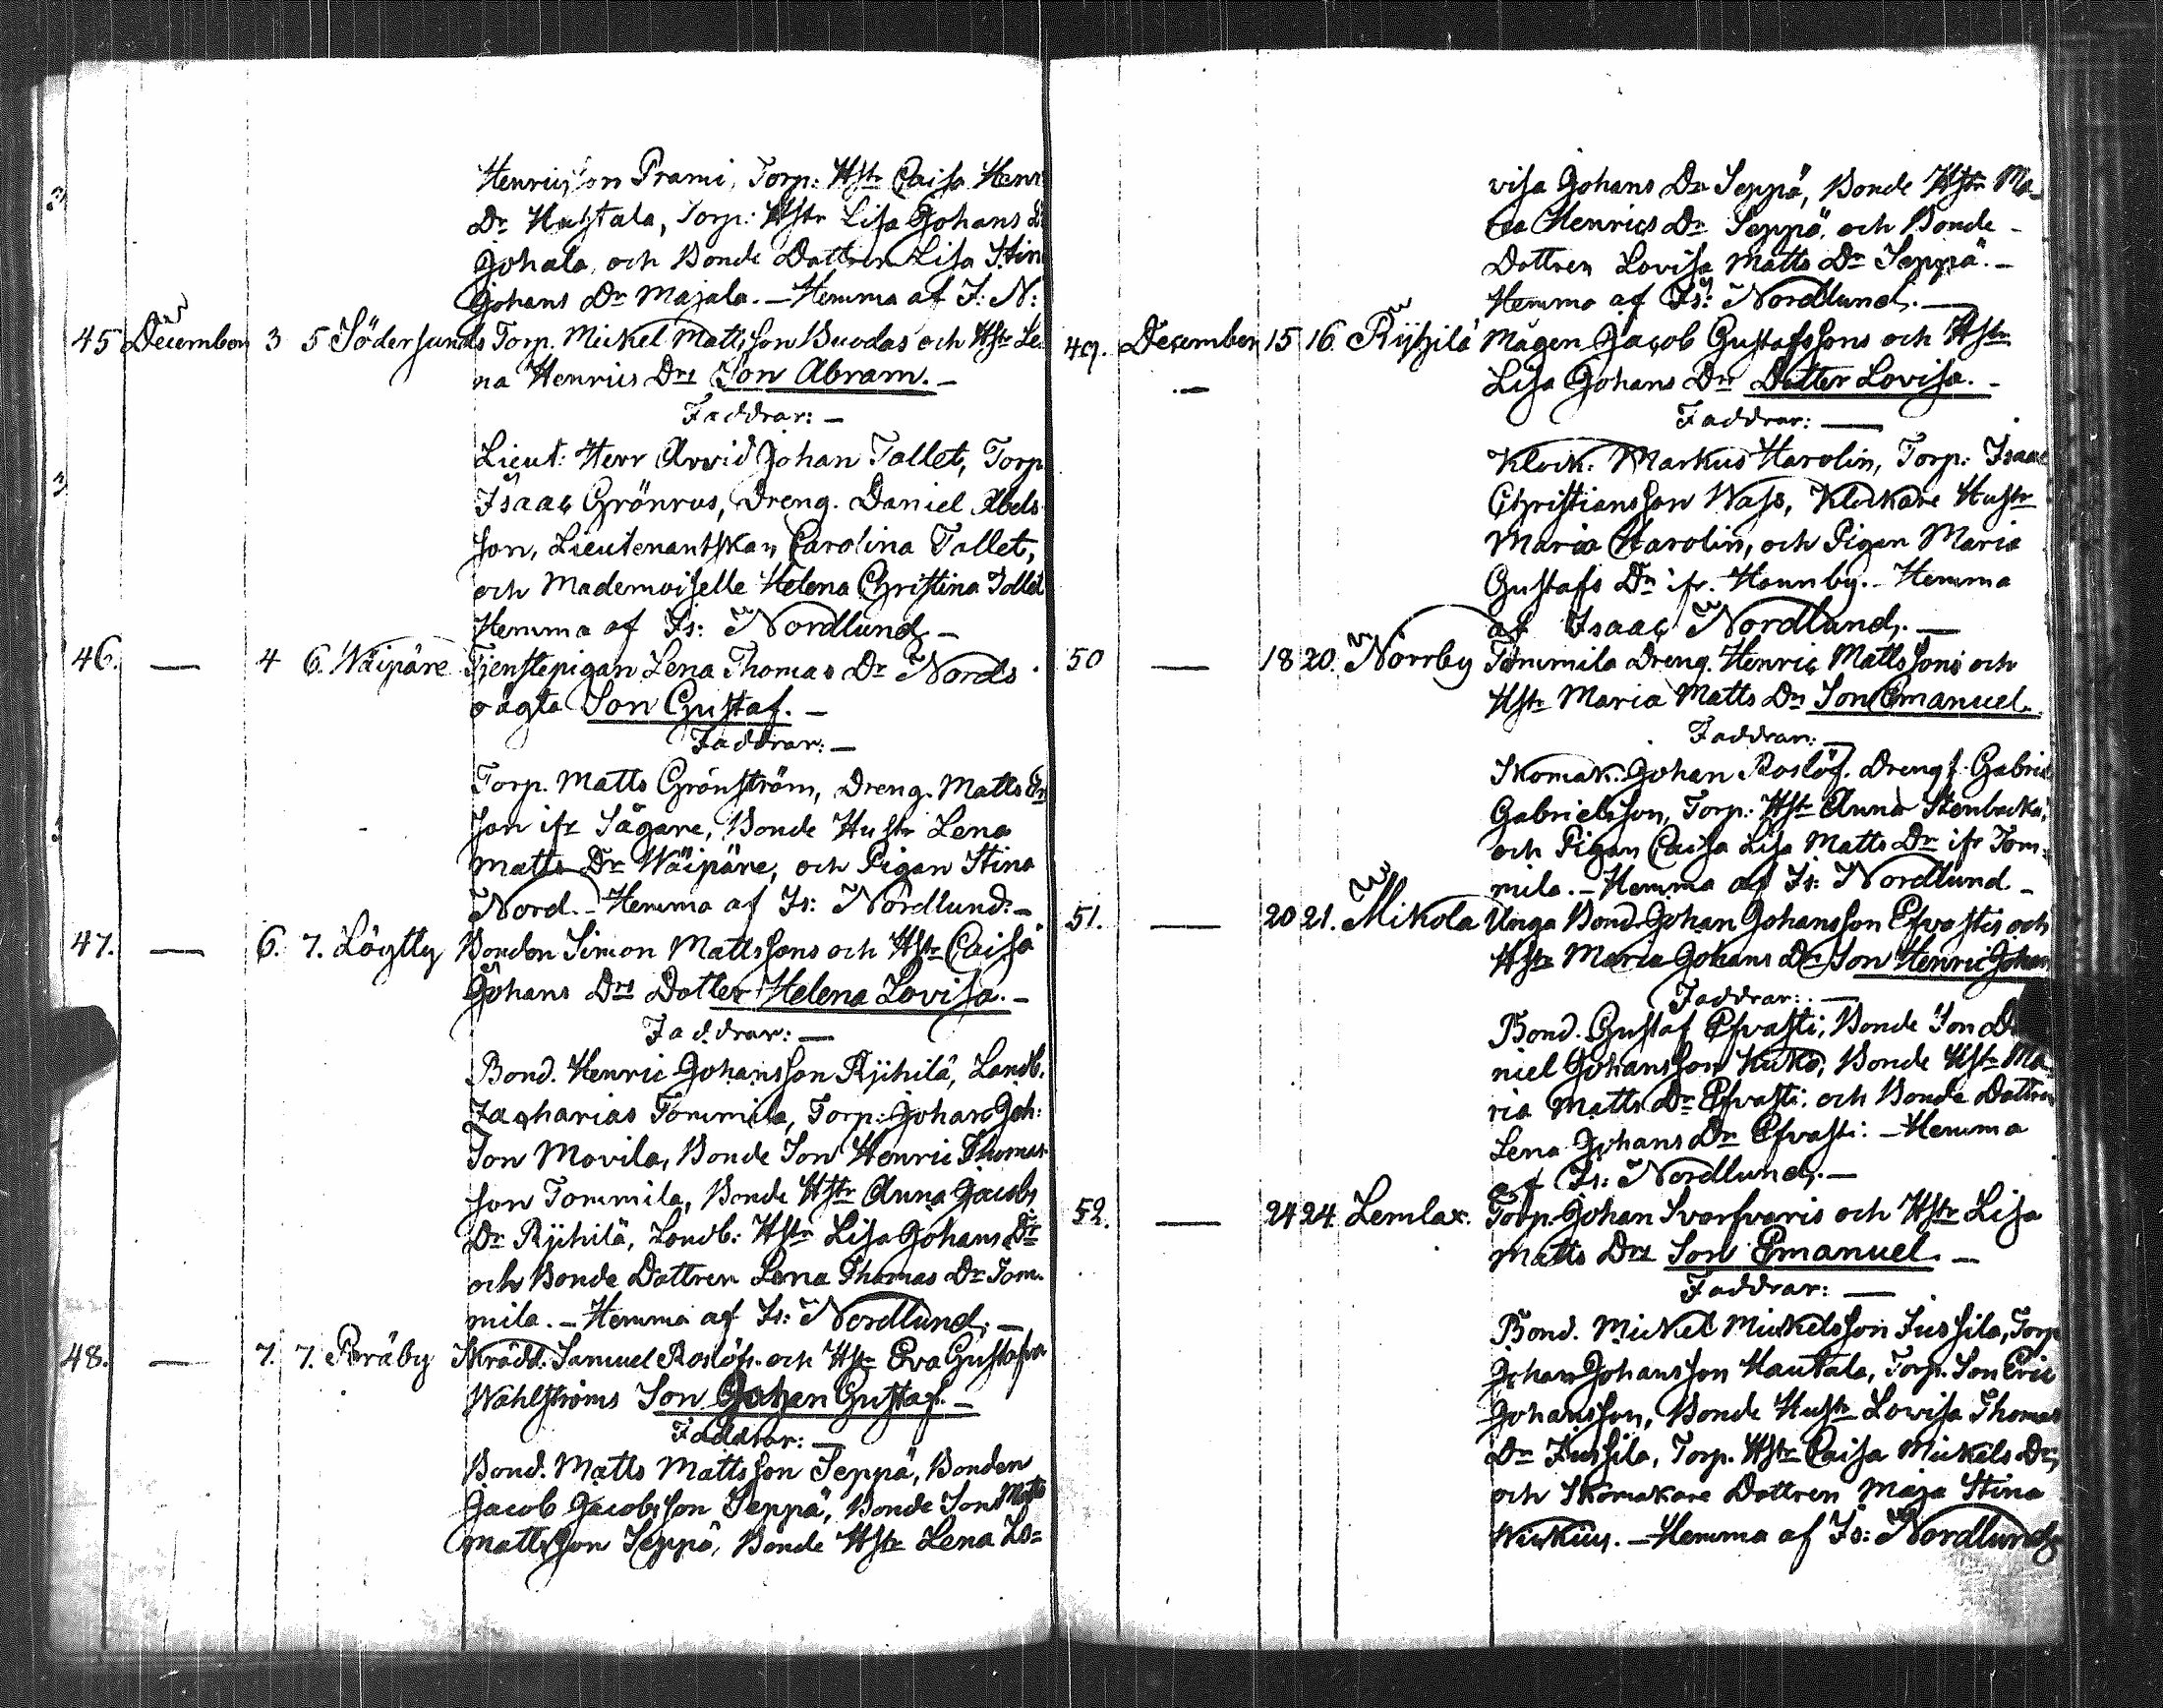 Henricsson Prami, Torp: Hstr Caisa Henr
Dr Huhtala, Torp: Hstr Lisa Johans
Johala, och Bonde Dottren Lisa Stin
Johans Dr Majala. — Hemma af I: N:
45 December 3 5 Södersunds Torp. Mickel Mattsson Buodas och Hstr Le-
na Henrics Drs Son Abram. —
Faddrar: —
Lieut: Herr Arvid Johan Tallet, Torp
Isaac Grönrus, Dreng. Daniel Abels
son, Lieutenantskan Carolina Tollet,
och Mademoiselle Helena Christina Tollet
Hemma af Is: Nordlund. —
46. — 4 6. Wäipäre Tjenstepigan Lena Thomas Dr Nords
oägta Son Gustaf. —
Faddrar: —
Torp. Matts Grönström, Dreng. Matts
son ifr Sågare, Bonde Hustr Lena
Matts Dr Wäipäre, och Pigan Stina
Nord. — Hemma af Is: Nordlund. —
47. — 6. 7. Lögtty Bonden Simon Mattssons och Hstr Caisa
Johans Drs Dotter Helena Lovisa. —
Faddrar: —
Bond. Henric Johansson Ryhilä, Landb.
Zacharias Tommila, Torp: Johan Joh:
Son Movila, Bonde Son Henric Thomas
son Tommila, Bonde Hstr Anna Jacobs
Dr Ryhilä, Landb: Hstr Lisa Johans Dr
och Bonde Dottren Lena Thomas Dr Tom-
mila. — Hemma af Is: Nordlund. —
48. — 7. 7. Persby Skrädd. Samuel Roslöfs och Hstr Eva Gustafva
Wahlströms Son Johan Gustaf. —
Faddrar: —
Bond. Matts Mattsson Seppä, Bonden
Jacob Jacobsson Seppä, Bonde Son Matts
Mattsson Seppä, Bonde Hstr Lena Lo=
visa Johans Dr Seppä, Bonde Hstr Ma-
ria Henrics Dr Seppä, och Bonde
Dottren Lovisa Matts Dr Seppä. —
Hemma af Is: Nordlund. —
49. December 15 16. Ryhilä Mågen Jacob Gustafssons och Hstr
Lisa Johans Drs Dotter Lovisa. —
Faddrar: —
Klock. Markus Harolin, Torp: Isaac
Christiansson Wass, Klockare Hustr
Maria Harolin, och Pigan Maria
Gustafs Dr ifr. Hounby. — Hemma
af Isaac Nordlund. —
50 — 18 20. Norrby Tommila Dreng. Henric Mattssons och
Hstr Maria Matts Drs Son Emanuel.
Faddrar: —
Skomak. Johan Roslöf. Drengf. Gabriel
Gabrielsson, Torp: Hstr Anna Stenbacka,
och Pigan Caisa Lisa Matts Dr ifr Tom-
mila. — Hemma af Is: Nordlund —
51. — 20 21. Mikola Unga Bond. Johan Johansson Efvastis och
Hstr Maria Johans Drs Son Henric Johan
Faddrar: —
Bond. Gustaf Efvasti, Bonde Son Da
niel Johansson Kuko, Bonde Hstr Ma
ria Matts Dr Efvasti: och Bonde Dottren
Lena Johans Dr Efvasti: — Hemma
af Is: Nordlund. —
52. — 24 24. Lemlax. Torp. Johan Svarfvaris och Hstr Lisa
Matts Drs Son Emanuel. —
Faddrar: —
Bond. Mickel Mickelsson Jussila, Torp
Johan Johansson Hautala, Torp. Son Eric
Johansson, Bonde Hustr Lovisa Thomas
Dr Jussila, Torp. Hstr Caisa Mickels Dr,
och Skomakare Dottren Maja Stina
— Hemma af Is: Nordlund